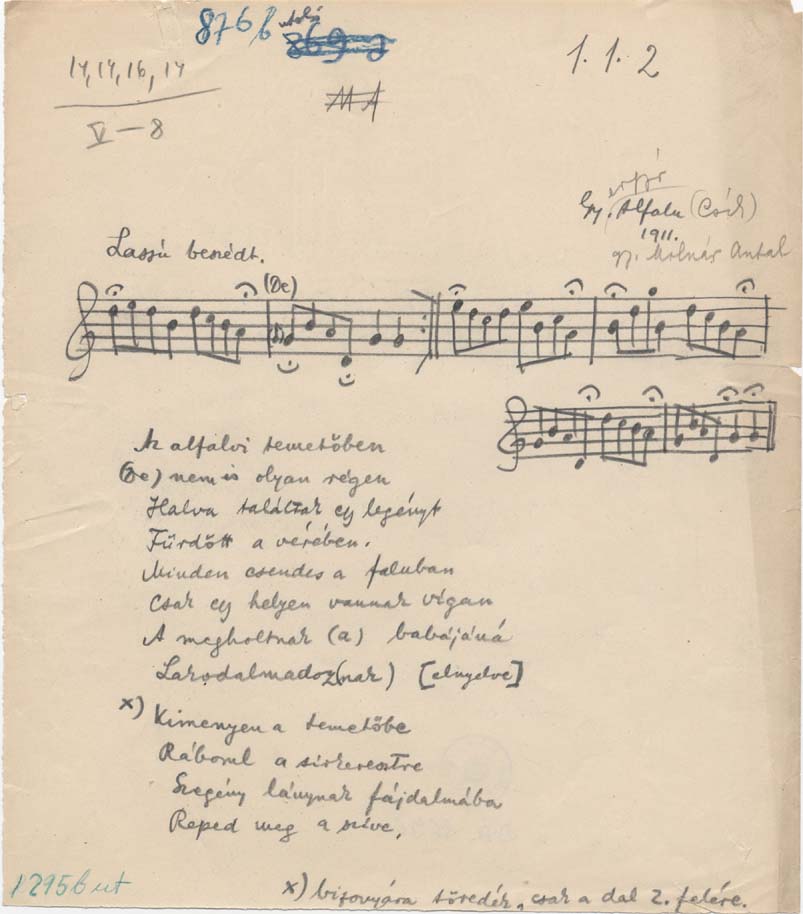 876 b utolsó
869 a
14, 14, 16, 14
V — 8
MA
1. 1. 2
Gy. Alfalu (Csík)
1911.
gy. Molnár Antal
Lassú beszédt.
(De)
Az alfalvi temetőben
(De) nem is olyan régen
Halva találtak egy legényt
Fürdött a vérében.
Minden csendes a faluban
Csak egy helyen vannak vígan
A megholtnak (a) babájáná
Lakodalmadoz(nak) [elnyelve]
x) Kimenyen a temetőbe
Ráborul a sírkeresztre
Szegény lánynak fájdalmába
Reped meg a szíve,
1295 b ut
x) bizonyára töredék, csak a dal 2. felére.